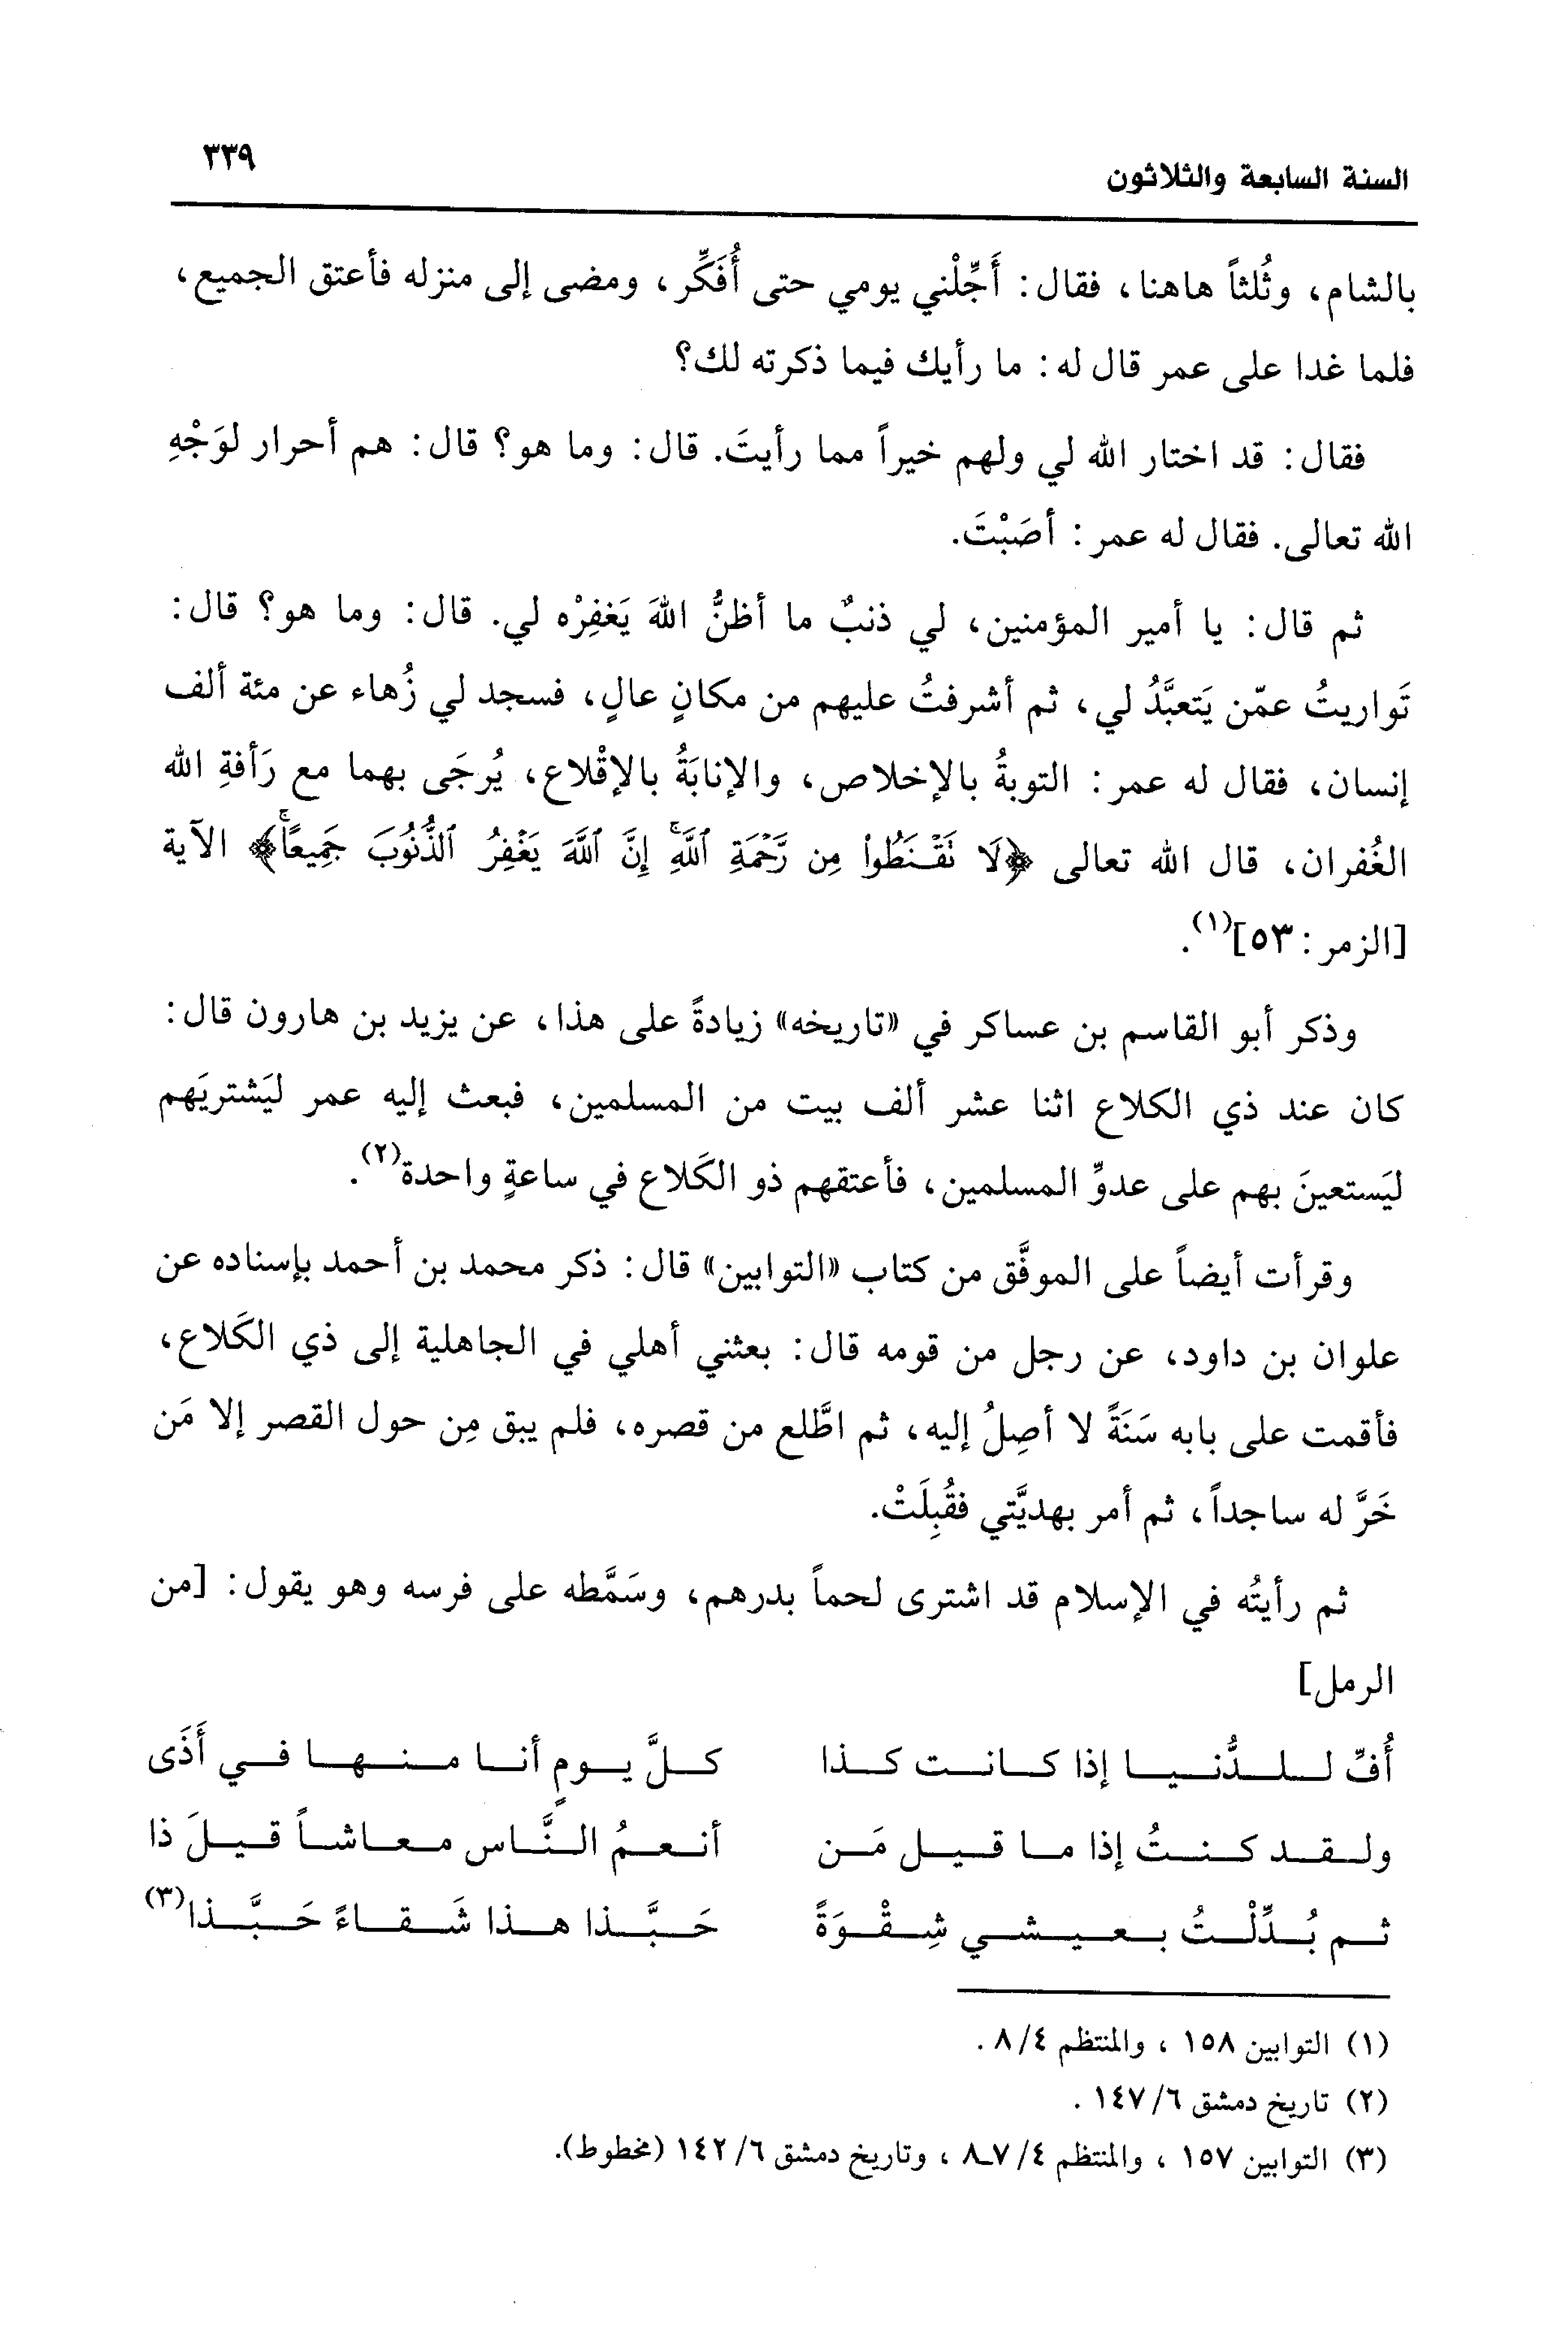 السنة السابعة والثلاثون
٣٣٩
بالشام، وثُلثاً هاهنا، فقال: أَجِّلْني يومي حتى أُفَكِّر، ومضى إلى منزله فأعتق الجميع،
فلما غدا على عمر قال له: ما رأيك فيما ذكرته لك؟
فقال: قد اختار الله لي ولهم خيراً مما رأيتَ. قال: وما هو؟ قال: هم أحرار لوَجْهِ
الله تعالى. فقال له عمر: أصَبْتَ.
ثم قال: يا أمير المؤمنين، لي ذنبٌ ما أظنُّ اللهَ يَغفِرْه لي. قال: وما هو؟ قال:
تَواريتُ عمّن يَتعبَّدُ لي، ثم أشرفتُ عليهم من مكانٍ عالٍ، فسجد لي زُهاء عن مئة ألف
إنسان، فقال له عمر: التوبةُ بالإخلاص، والإنابَةُ بالإقْلاع، يُرجَى بهما مع رَأفةِ الله
الغُفران، قال الله تعالى ﴿لَا نَقْـنَطُوا۟ مِن رَّحْمَةِ ٱللَّهِۚ إِنَّ ٱللَّهَ يَغْفِرُ ٱلذُّنُوبَ جَمِيعًاۚ﴾ الآية
[الزمر: ٥٣](١).
وذكر أبو القاسم بن عساكر في «تاريخه» زيادةً على هذا، عن يزيد بن هارون قال:
كان عند ذي الكلاع اثنا عشر ألف بيت من المسلمين، فبعث إليه عمر ليَشتريَهم
ليَستعينَ بهم على عدوِّ المسلمين، فأعتقهم ذو الكَلاع في ساعةٍ واحدة(٢).
وقرأت أيضاً على الموفَّق من كتاب «التوابين» قال: ذكر محمد بن أحمد بإسناده عن
علوان بن داود، عن رجل من قومه قال: بعثني أهلي في الجاهلية إلى ذي الكَلاع،
فأقمت على بابه سَنَةً لا أصِلُ إليه، ثم اطَّلع من قصره، فلم يبق مِن حول القصر إلا مَن
خَرَّ له ساجداً، ثم أمر بهديَّتي فقُبِلَتْ.
ثم رأيتُه في الإسلام قد اشترى لحماً بدرهم، وسَمَّطه على فرسه وهو يقول: [من
الرمل]
أُفِّ لـلـدُّنـيـا إذا كـانـت كـذا كـلَّ يـومٍ أنـا مـنـهـا فـي أَذَى
ولـقـد كـنـتُ إذا مـا قـيـل مَـن أنـعـمُ الـنَّـاس مـعـاشـاً قـيـلَ ذا
ثـم بُـدِّلْـتُ بـعـيـشـي شِـقْـوَةً حَـبَّـذا هـذا شَـقـاءً حَـبَّـذا(٣)
(١) التوابين ١٥٨ ، والمنتظم ٤/ ٨ .
(٢) تاريخ دمشق ٦/ ١٤٧ .
(٣) التوابين ١٥٧ ، والمنتظم ٤/ ٧ـ٨ ، وتاريخ دمشق ٦/ ١٤٢ (مخطوط).